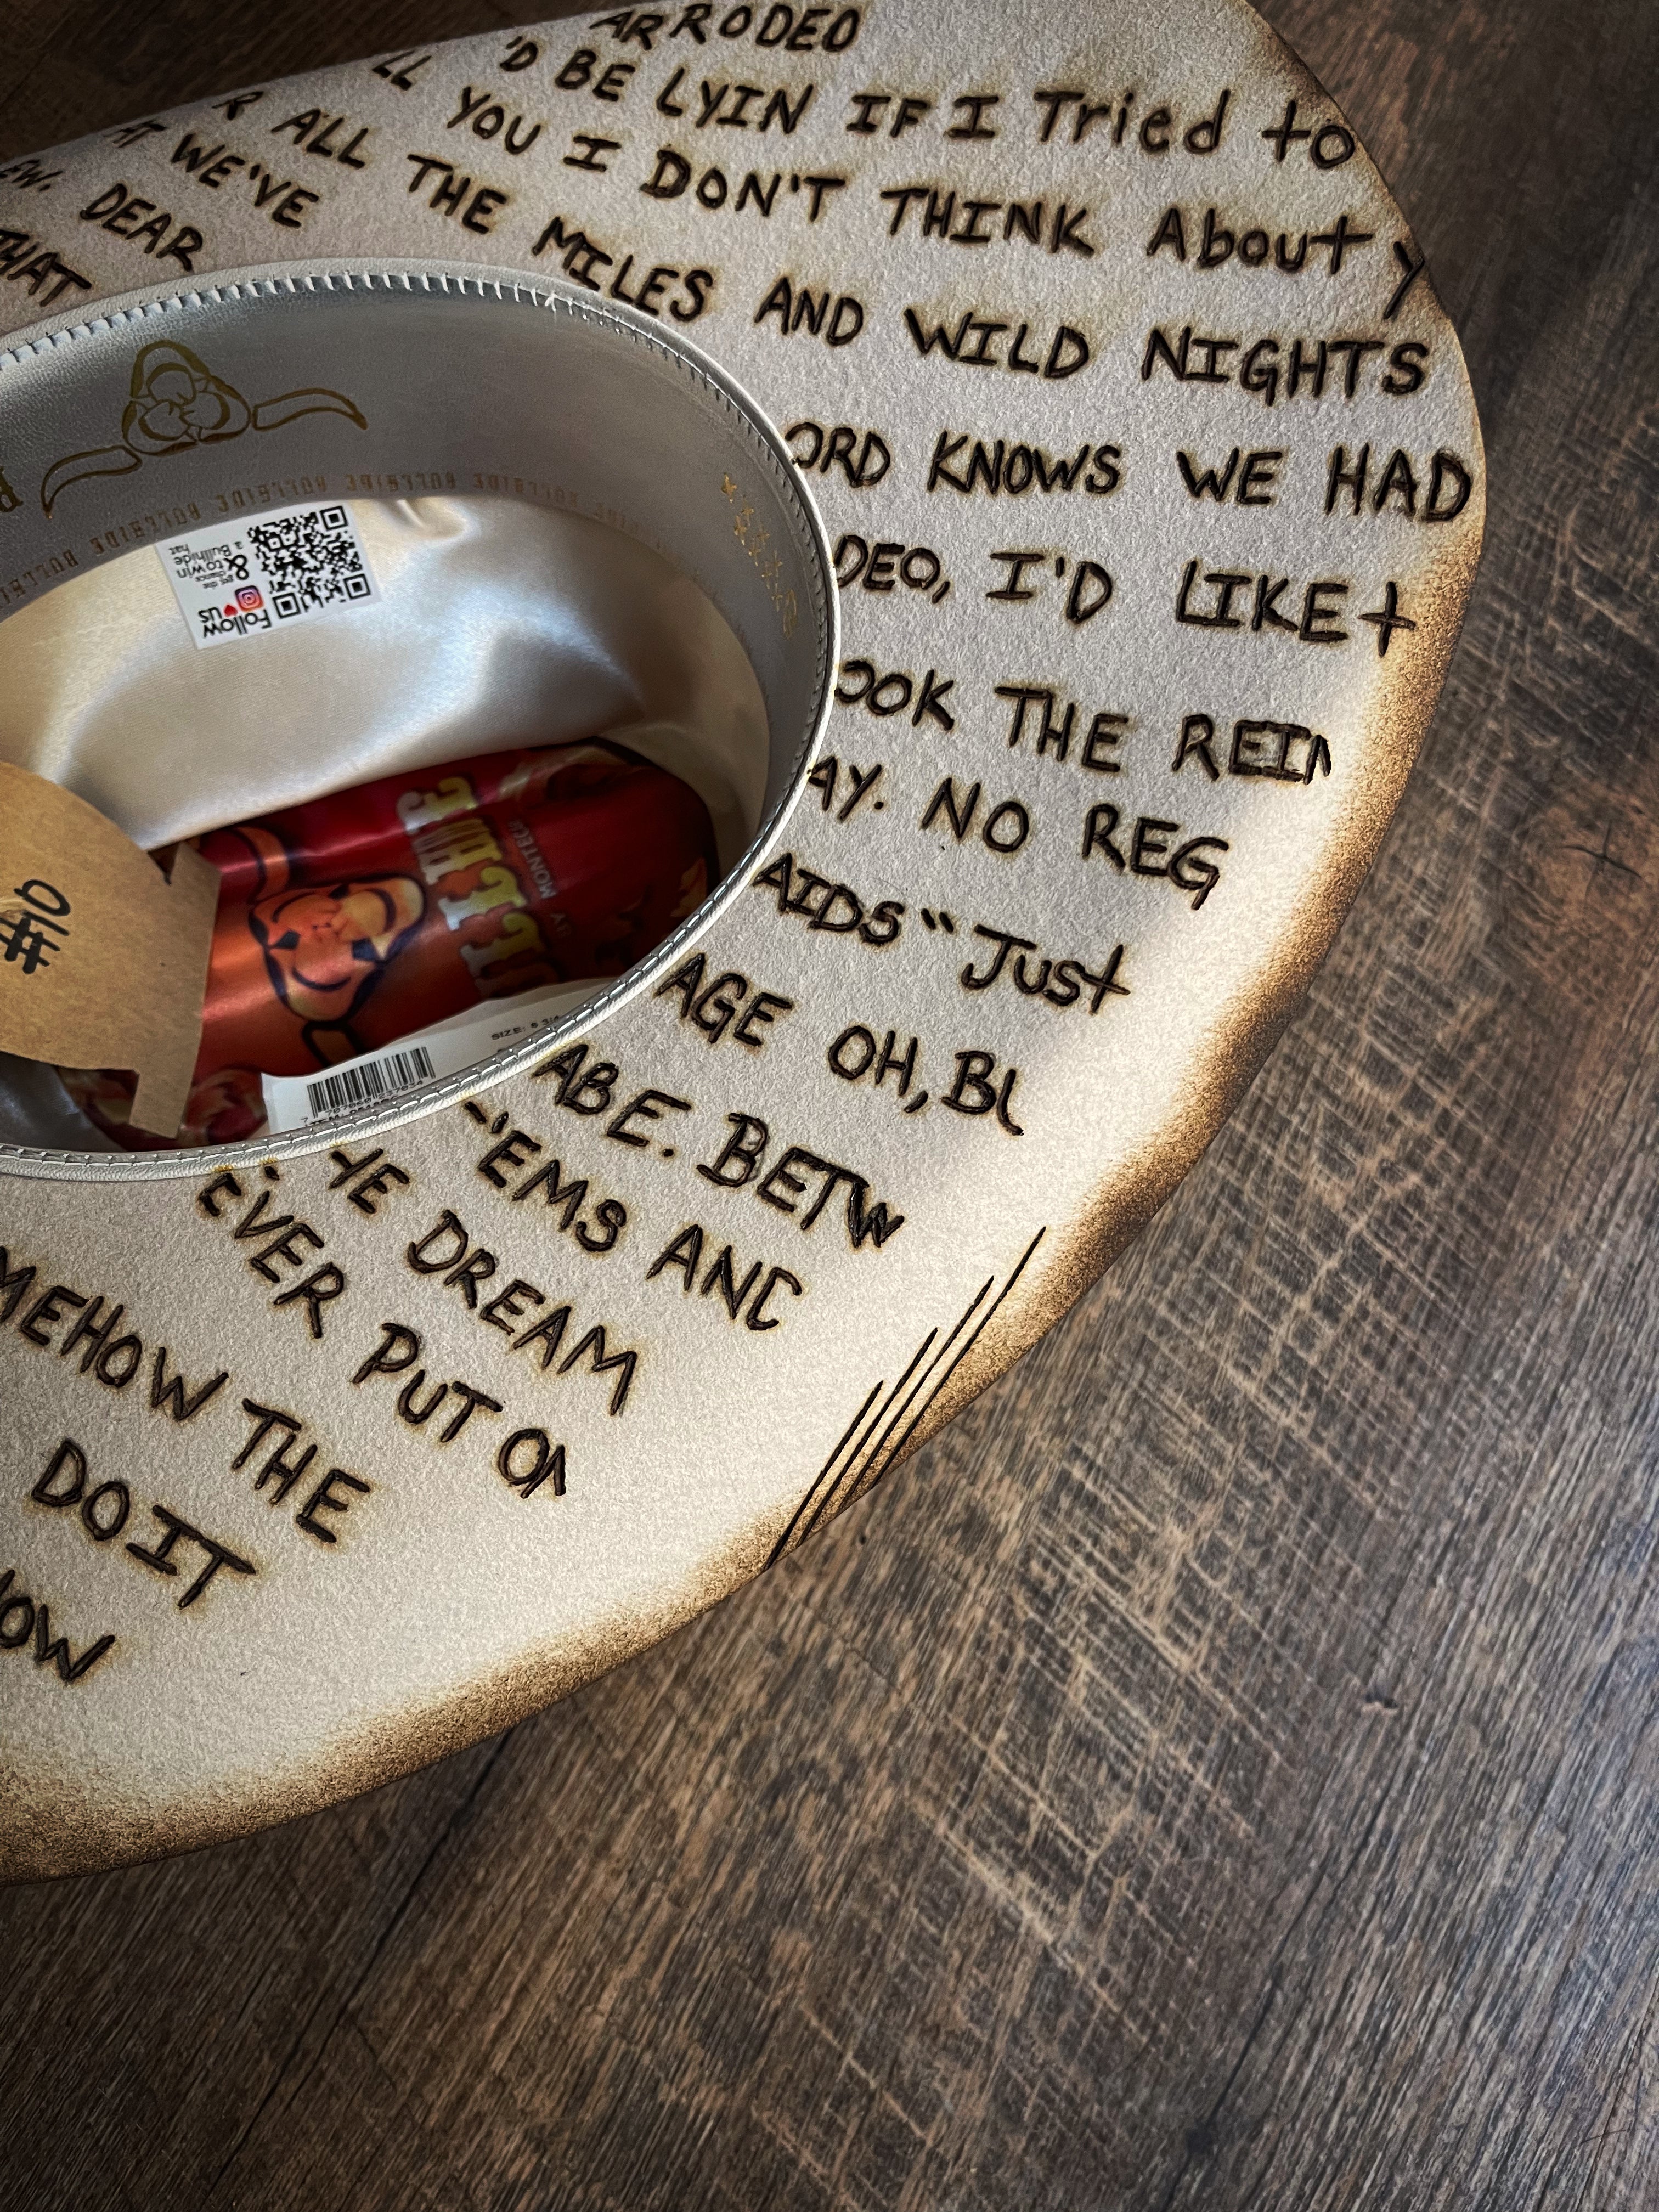 AR RODEO
'D BE LYIN IF I Tried to
LL YOU I DON'T THINK About y
R ALL THE MILES AND WILD NIGHTS
AT WE'VE
ORD KNOWS WE HAD
EW. DEAR
DEO, I'D LIKE t
THAT
OOK THE REIN
AY. NO REG
AIDS " Just
AGE OH, BL
ABE. BETW
-'EMS AND
HE DREAM
EVER PUT ON
MEHOW THE
DO IT
NOW
#10
Follow
US
get the
chance
to win
&
a Bullhide
hat
BULLHIDE BULLHIDE BULLHIDE BULLHIDE BULLHIDE
MONTEC
BY
SIZE: 6 3/4